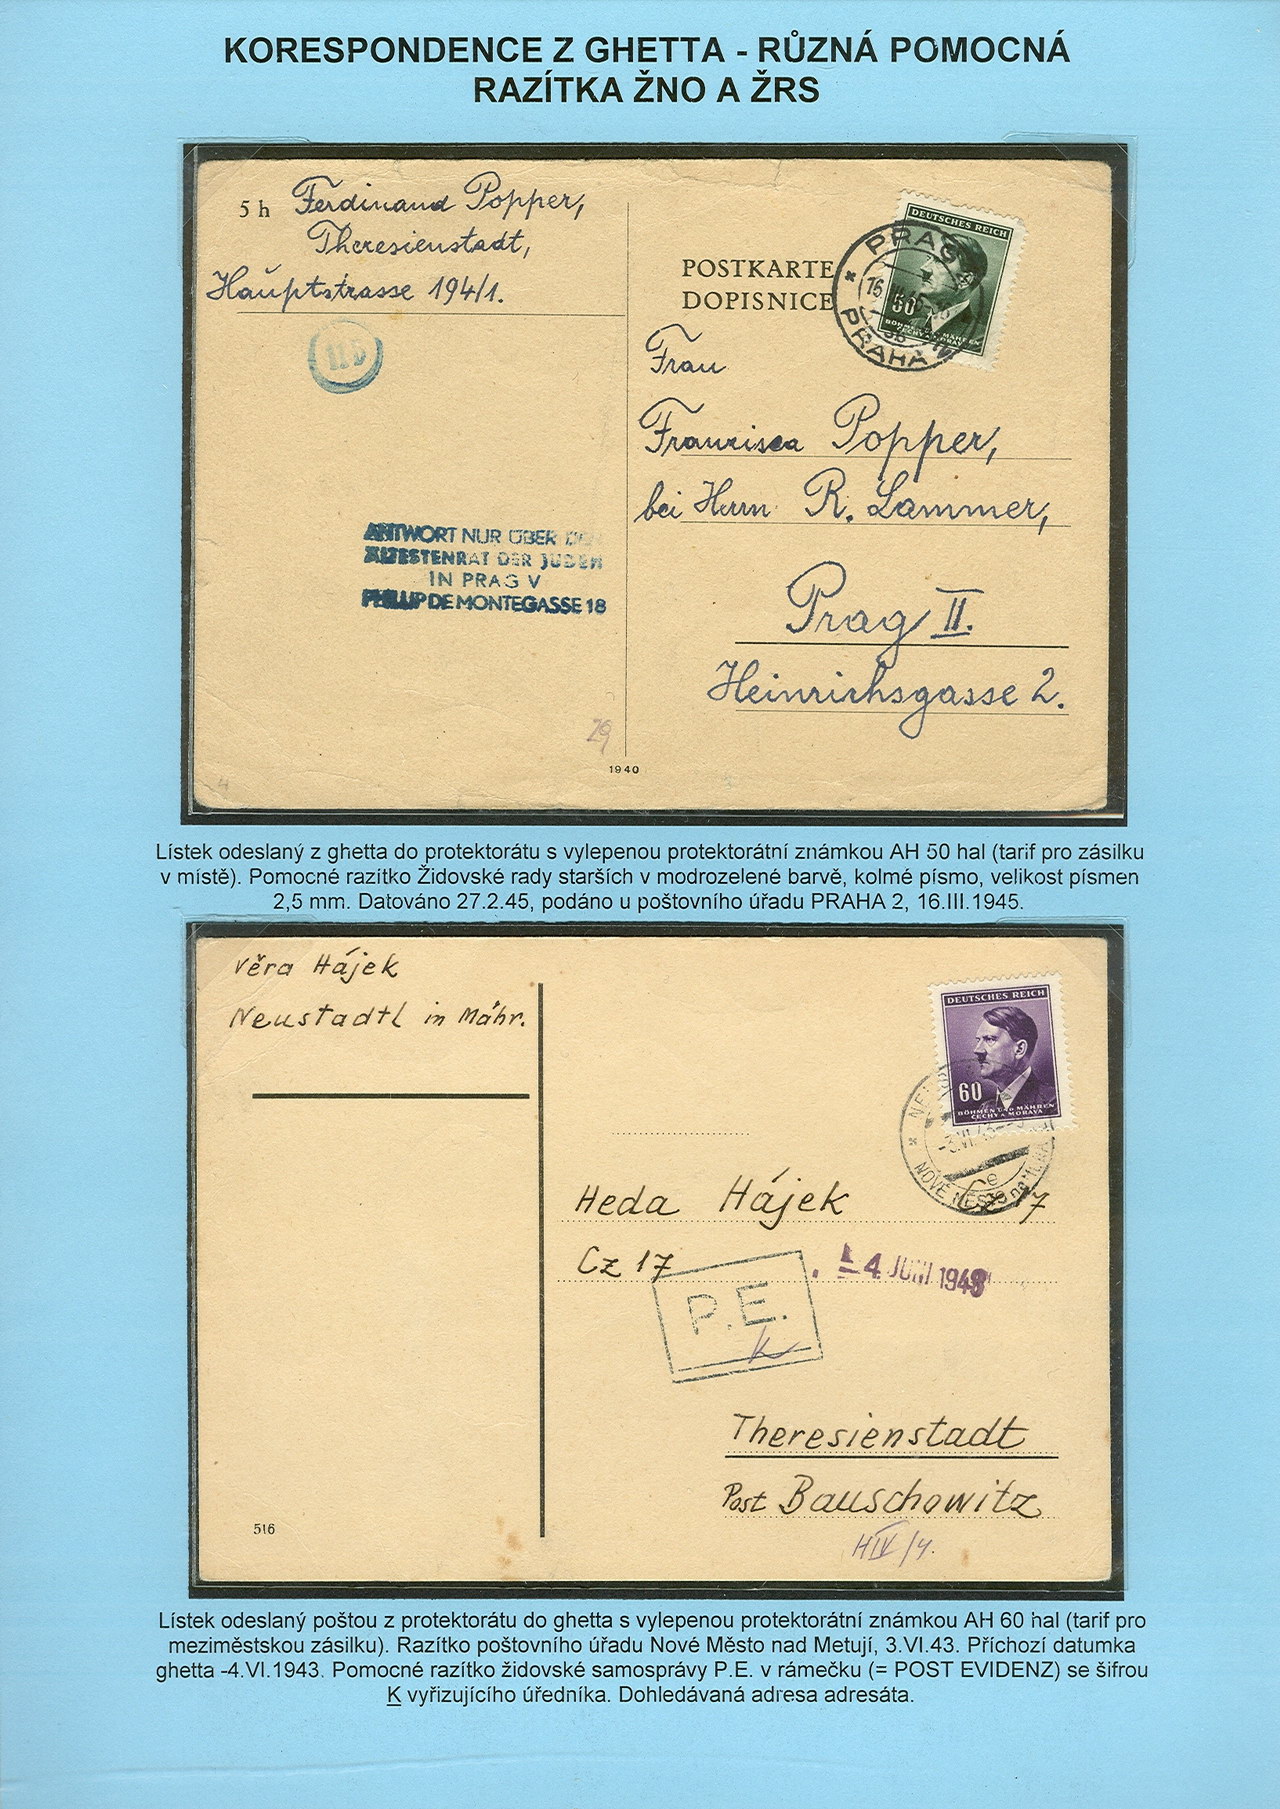 KORESPONDENCE Z GHETTA - RŮZNÁ POMOCNÁ
RAZÍTKA ŽNO A ŽRS
5 h Ferdinand Popper,
Theresienstadt,
Hauptstrasse 194/1.
115
POSTKARTE
DOPISNICE
DEUTSCHES REICH
50
BÖHMEN UND MÄHREN
ČECHY A MORAVA
PRAG
PRAHA
Frau
Franzisca Popper,
bei Herrn R. Lammer,
Prag II.
Heinrichsgasse 2.
ANTWORT NUR ÜBER DEN
ÄLTESTENRAT DER JUDEN
IN PRAG V
PHILLIP DE MONTEGASSE 18
29
1940
Lístek odeslaný z ghetta do protektorátu s vylepenou protektorátní známkou AH 50 hal (tarif pro zásilku
v místě). Pomocné razítko Židovské rady starších v modrozelené barvě, kolmé písmo, velikost písmen
2,5 mm. Datováno 27.2.45, podáno u poštovního úřadu PRAHA 2, 16.III.1945.
Věra Hájek
Neustadtl in Mähr.
DEUTSCHES REICH
60
BÖHMEN UND MÄHREN
ČECHY A MORAVA
-3.VI.43
NOVÉ MĚSTO na
Heda Hájek Cz 17
Cz 17
- 4 JUNI 1943
P.E.
K
Theresienstadt
Post Bauschowitz
H IV/4.
516
Lístek odeslaný poštou z protektorátu do ghetta s vylepenou protektorátní známkou AH 60 hal (tarif pro
meziměstskou zásilku). Razítko poštovního úřadu Nové Město nad Metují, 3.VI.43. Příchozí datumka
ghetta -4.VI.1943. Pomocné razítko židovské samosprávy P.E. v rámečku (= POST EVIDENZ) se šifrou
K vyřizujícího úředníka. Dohledávaná adresa adresáta.